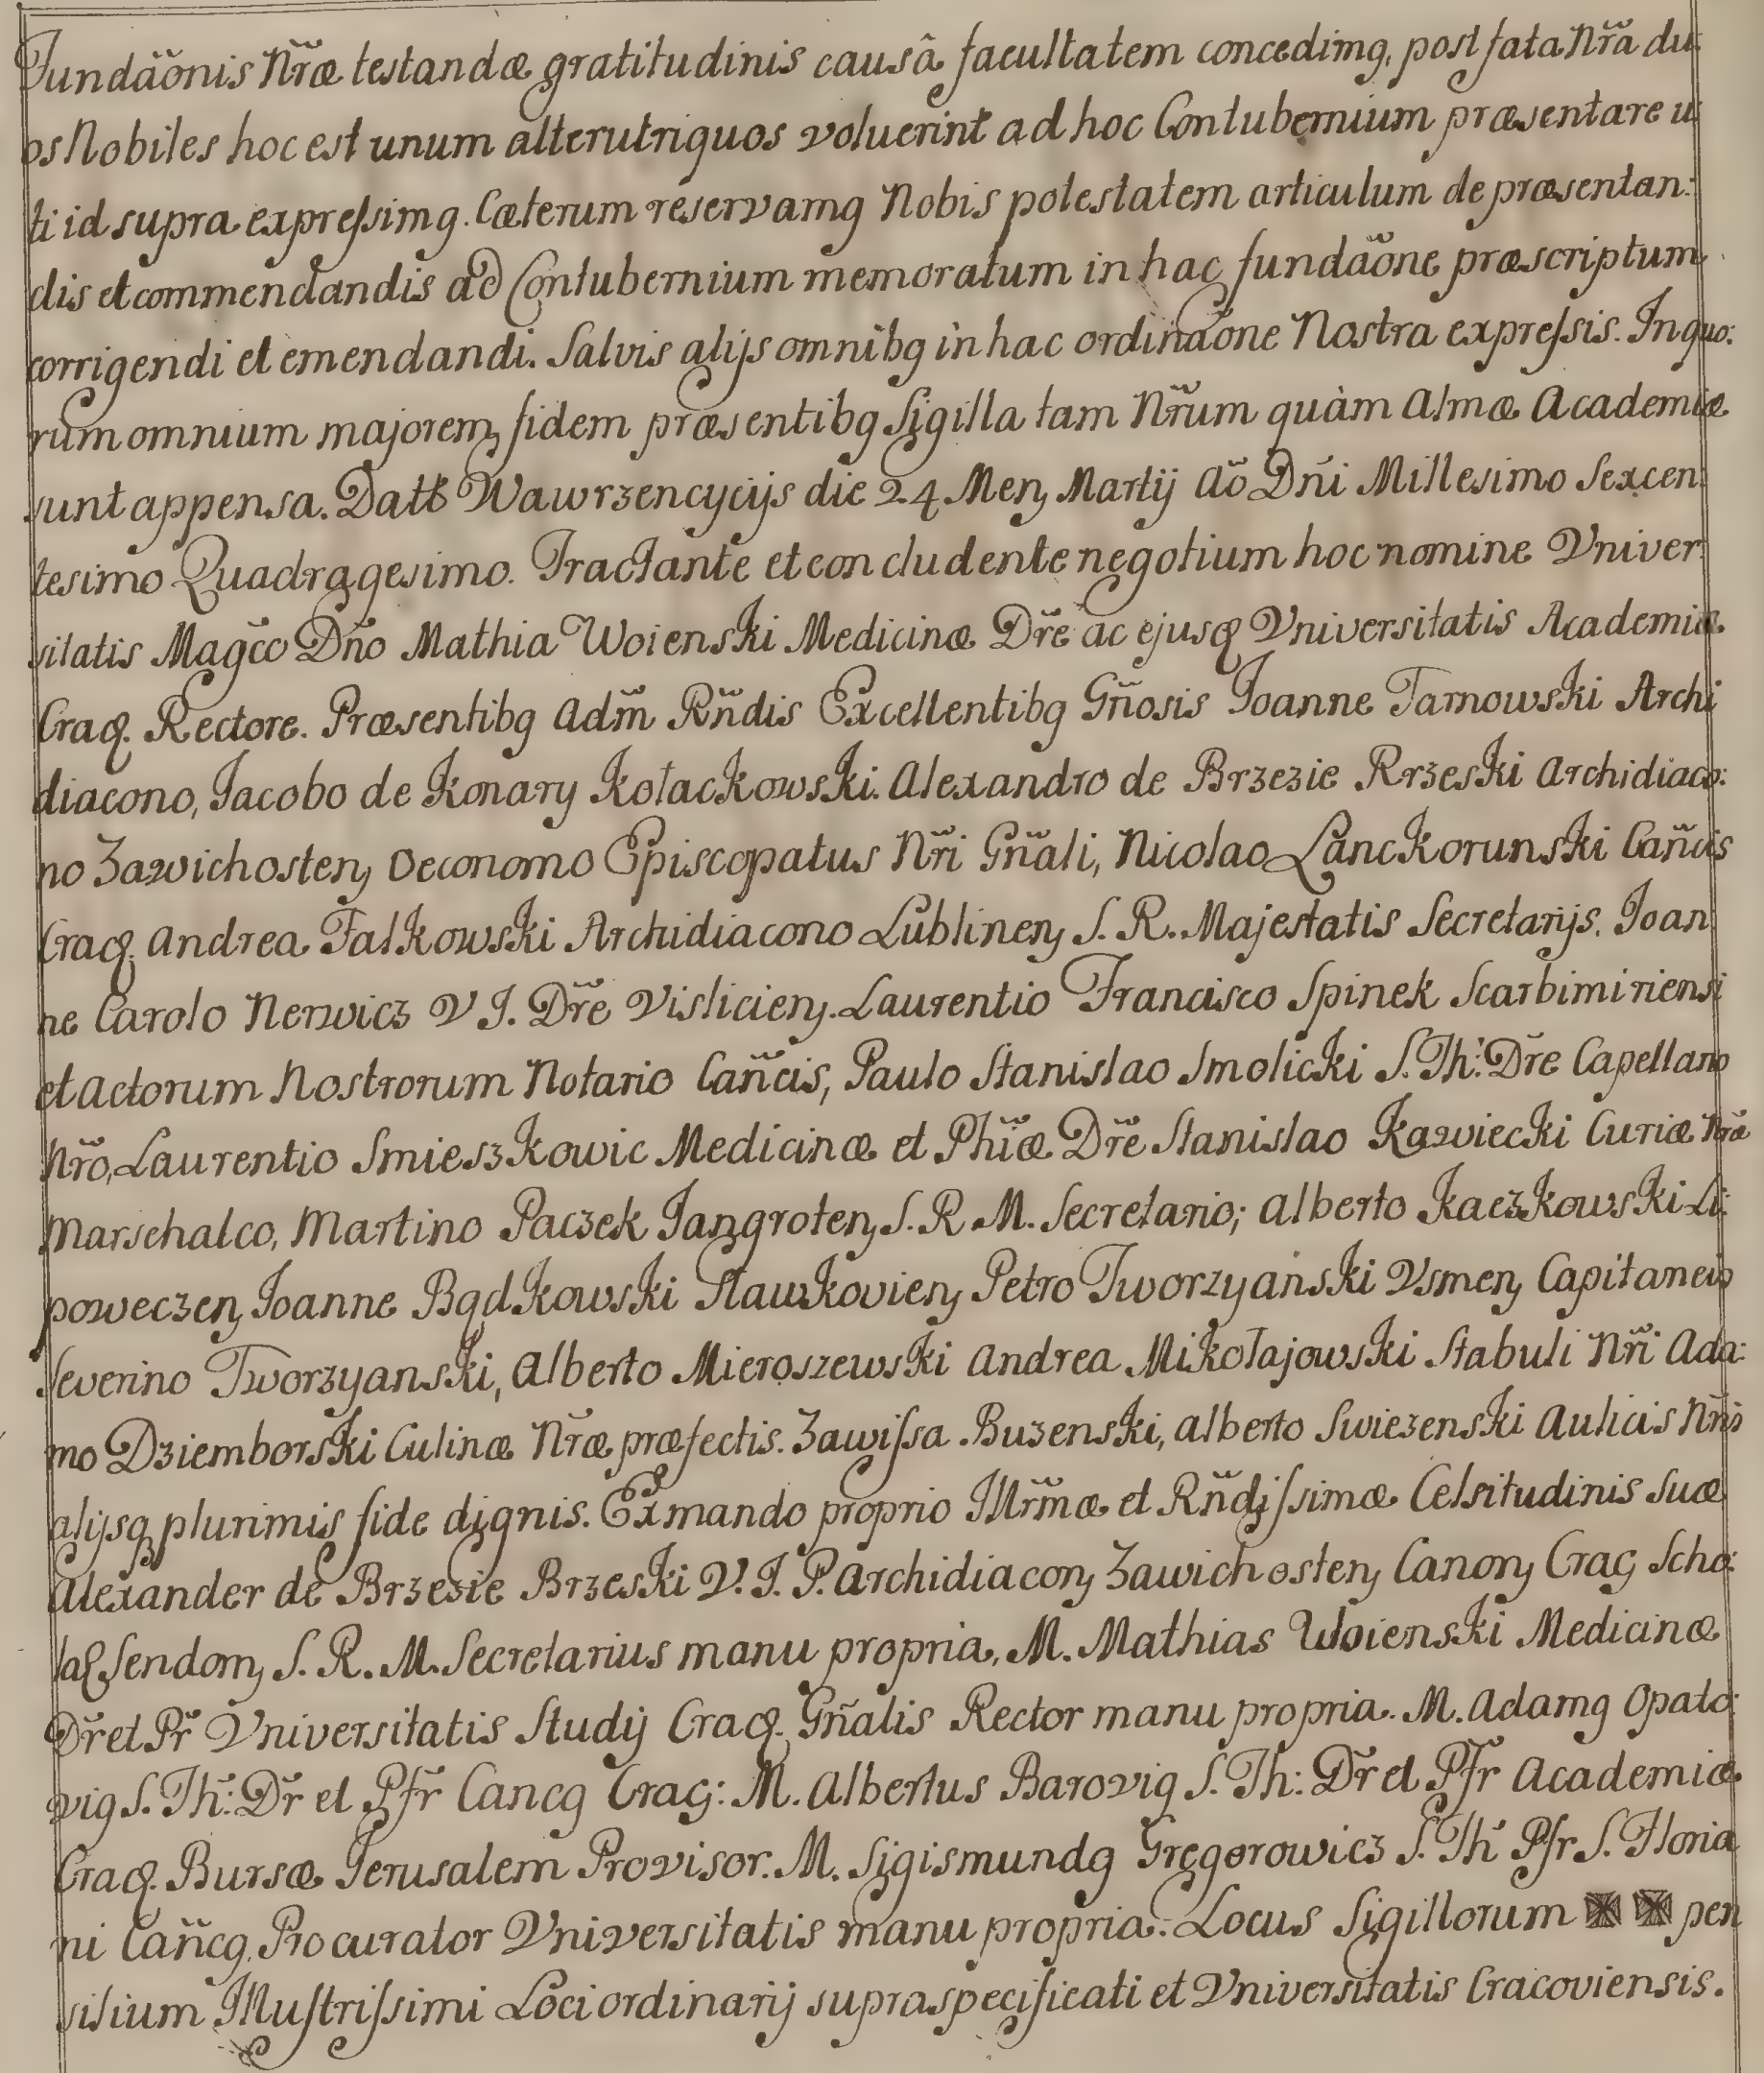 Fundãonis Nr̃æ testandæ gratitudinis causâ facultatem concedimꝰ, post fata Nr̃a du:
os Nobiles hoc est unum alterutriquos voluerint ad hoc Contubernium præsentare u
ti id supra expressimꝰ. Cæterum reservamꝰ Nobis potestatem articulum de præsentan:
dis et commendandis ad Contubernium memoratum in hac fundãone præscriptum
corrigendi et emendandi. Salvis alijs omnibꝰ in hac ordinãone Nostra expressis. In quo:
rum omnium majorem fidem præsentibꝰ Sigilla tam Nr̃um quàm Almæ Academiæ
sunt appensa. Datt Wawrzencycijs die 24 Menꝫ Martij Aõ Dñi Millesimo Sexcen:
tesimo Quadragesimo. Tractante et concludente negotium hoc nomine Univer:
sitatis Magc̃o Dño Mathia Woienski Medicinæ Dr̃e ac ejusꝙ Universitatis Academiæ
Craꝙ. Rectore. Præsentibꝰ Adm̃ Rñdis Excellentibꝰ Gñosis Joanne Tarnowski Archi
diacono, Jacobo de Konary Kołackowski. Alexandro de Brzezie Rrzeski Archidiaco:
no Zawichostenꝫ Oeconomo Episcopatus Nr̃i Gñali, Nicolao Lanckorunski Cañcis
Craꝙ. Andrea Falkowski Archidiacono Lublinenꝫ S. R. Majestatis Secretarijs. Joan
ne Carolo Nerwicz V J. Dr̃e Vislicienꝫ. Laurentio Francisco Spinek Scarbimiriensi
et Actorum Nostrorum Notario Cañcis, Paulo Stanislao Smolicki S. Th: Dr̃e Capellano
Nr̃o, Laurentio Smieszkowic Medicinæ et Phĩæ Dr̃e Stanislao Kawiecki Curiæ Nr̃æ
Marschalco, Martino Paczek Jangrotenꝫ S. R M. Secretario; Alberto Kaczkowski Li:
poweczenꝫ Joanne Bądkowski Slawkovienꝫ Petro Tworzyanski Usmenꝫ Capitaneis
Severino Tworzyanski, Alberto Mieroszewski Andrea Mikołajowski Stabuli Nr̃i Ada:
mo Dziemborski Culinæ Nr̃æ præfectis. Zawissa Buzenski, Alberto Swiezenski Aulicis Nr̃is
alijsꝙ plurimis fide dignis. Ex mando proprio Illr̃mæ et Rñdissimæ Celsitudinis Suæ
Alexander de Brzezie Brzeski V. J. P. Archidiaconꝫ Zawichostenꝫ Canonꝫ Cracꝫ Scho:
laꝙ Sendomꝫ S. R. M. Secretarius manu propria, M. Mathias Woienski Medicinæ
Dr̃ et Pr̃ Universitatis Studij Craꝙ. Gñalis Rector manu propria. M. Adamꝰ Opato:
viꝰ S. Th: Dr̃ et Pfr̃ Cancꝰ Cracꝫ: M. Albertus Baroviꝰ S. Th: Dr̃ et Pfr̃ Academiæ
Craꝙ. Bursæ Jerusalem Provisor. M. Sigismundꝰ Gregorowicz S. Th Pfr S. Floria
ni Cañcꝰ, Procurator Universitatis manu propria. Locus Sigillorum ✠ ✠ pen
silium Illustrissimi Loci ordinarij supraspecificati et Universitatis Cracoviensis.